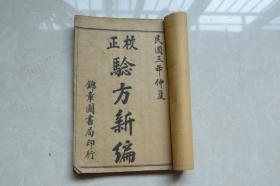 民國三年仲夏
校正
驗方新編
錦章圖書局印行